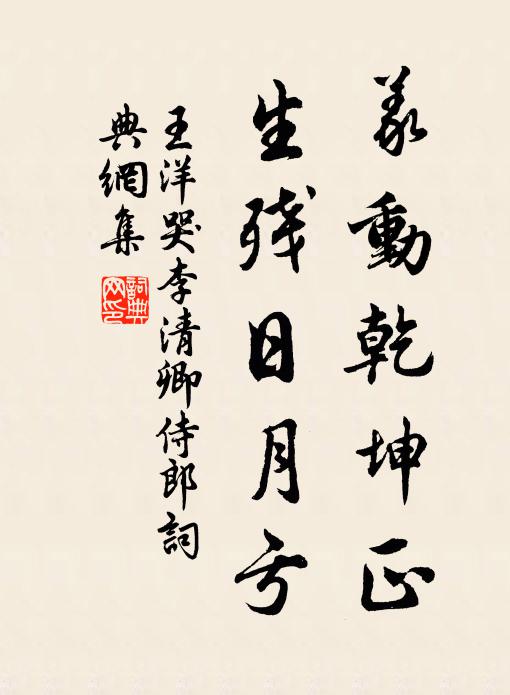 義動乾坤正
生殘日月亏
王洋哭李清卿侍郎詞
典網集
詞典网印